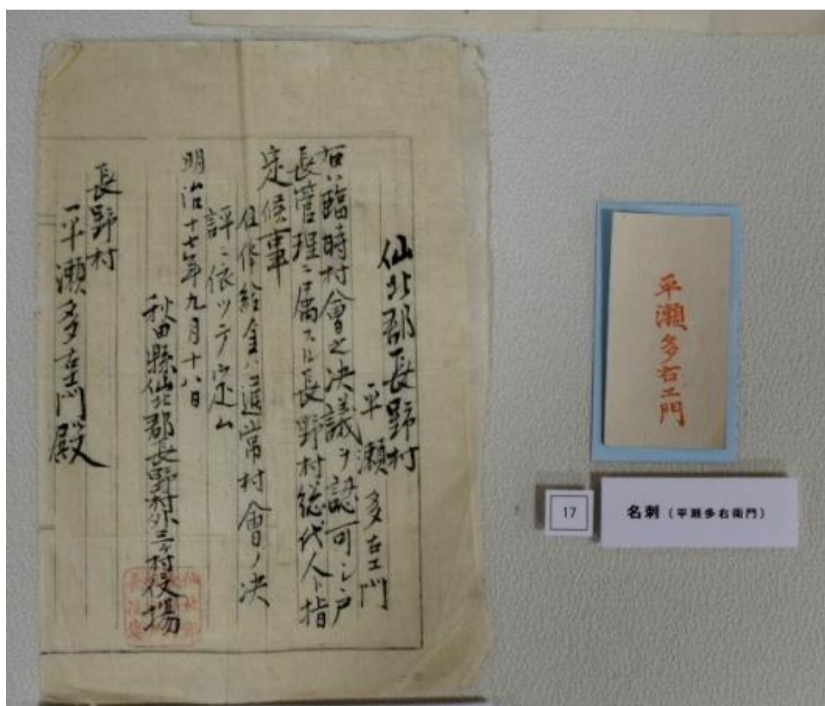 仙北郡長野村
平瀬多右エ門
右ハ臨時村會之决議ヲ認可シ戸
長管理ニ属スル長野村総代人ト指
定候事
但俸給金ハ通常村會ノ决
評ニ依ツテ定ム
明治十七年九月十八日
秋田縣仙北郡長野村外三ヶ村役場
長野村
平瀬多右エ門殿
平瀬多右エ門
17
名刺（平瀬多右衛門）